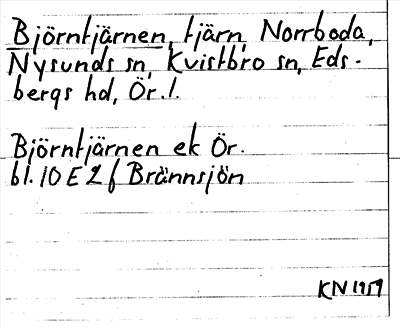 Björntjärnen, tjärn, Norrboda,
Nysunds sn, Kvistbro sn, Eds-
bergs hd, Ör.l.
Björntjärnen ek Ör.
bl. 10 E 2 f Brännsjön
KN 1959